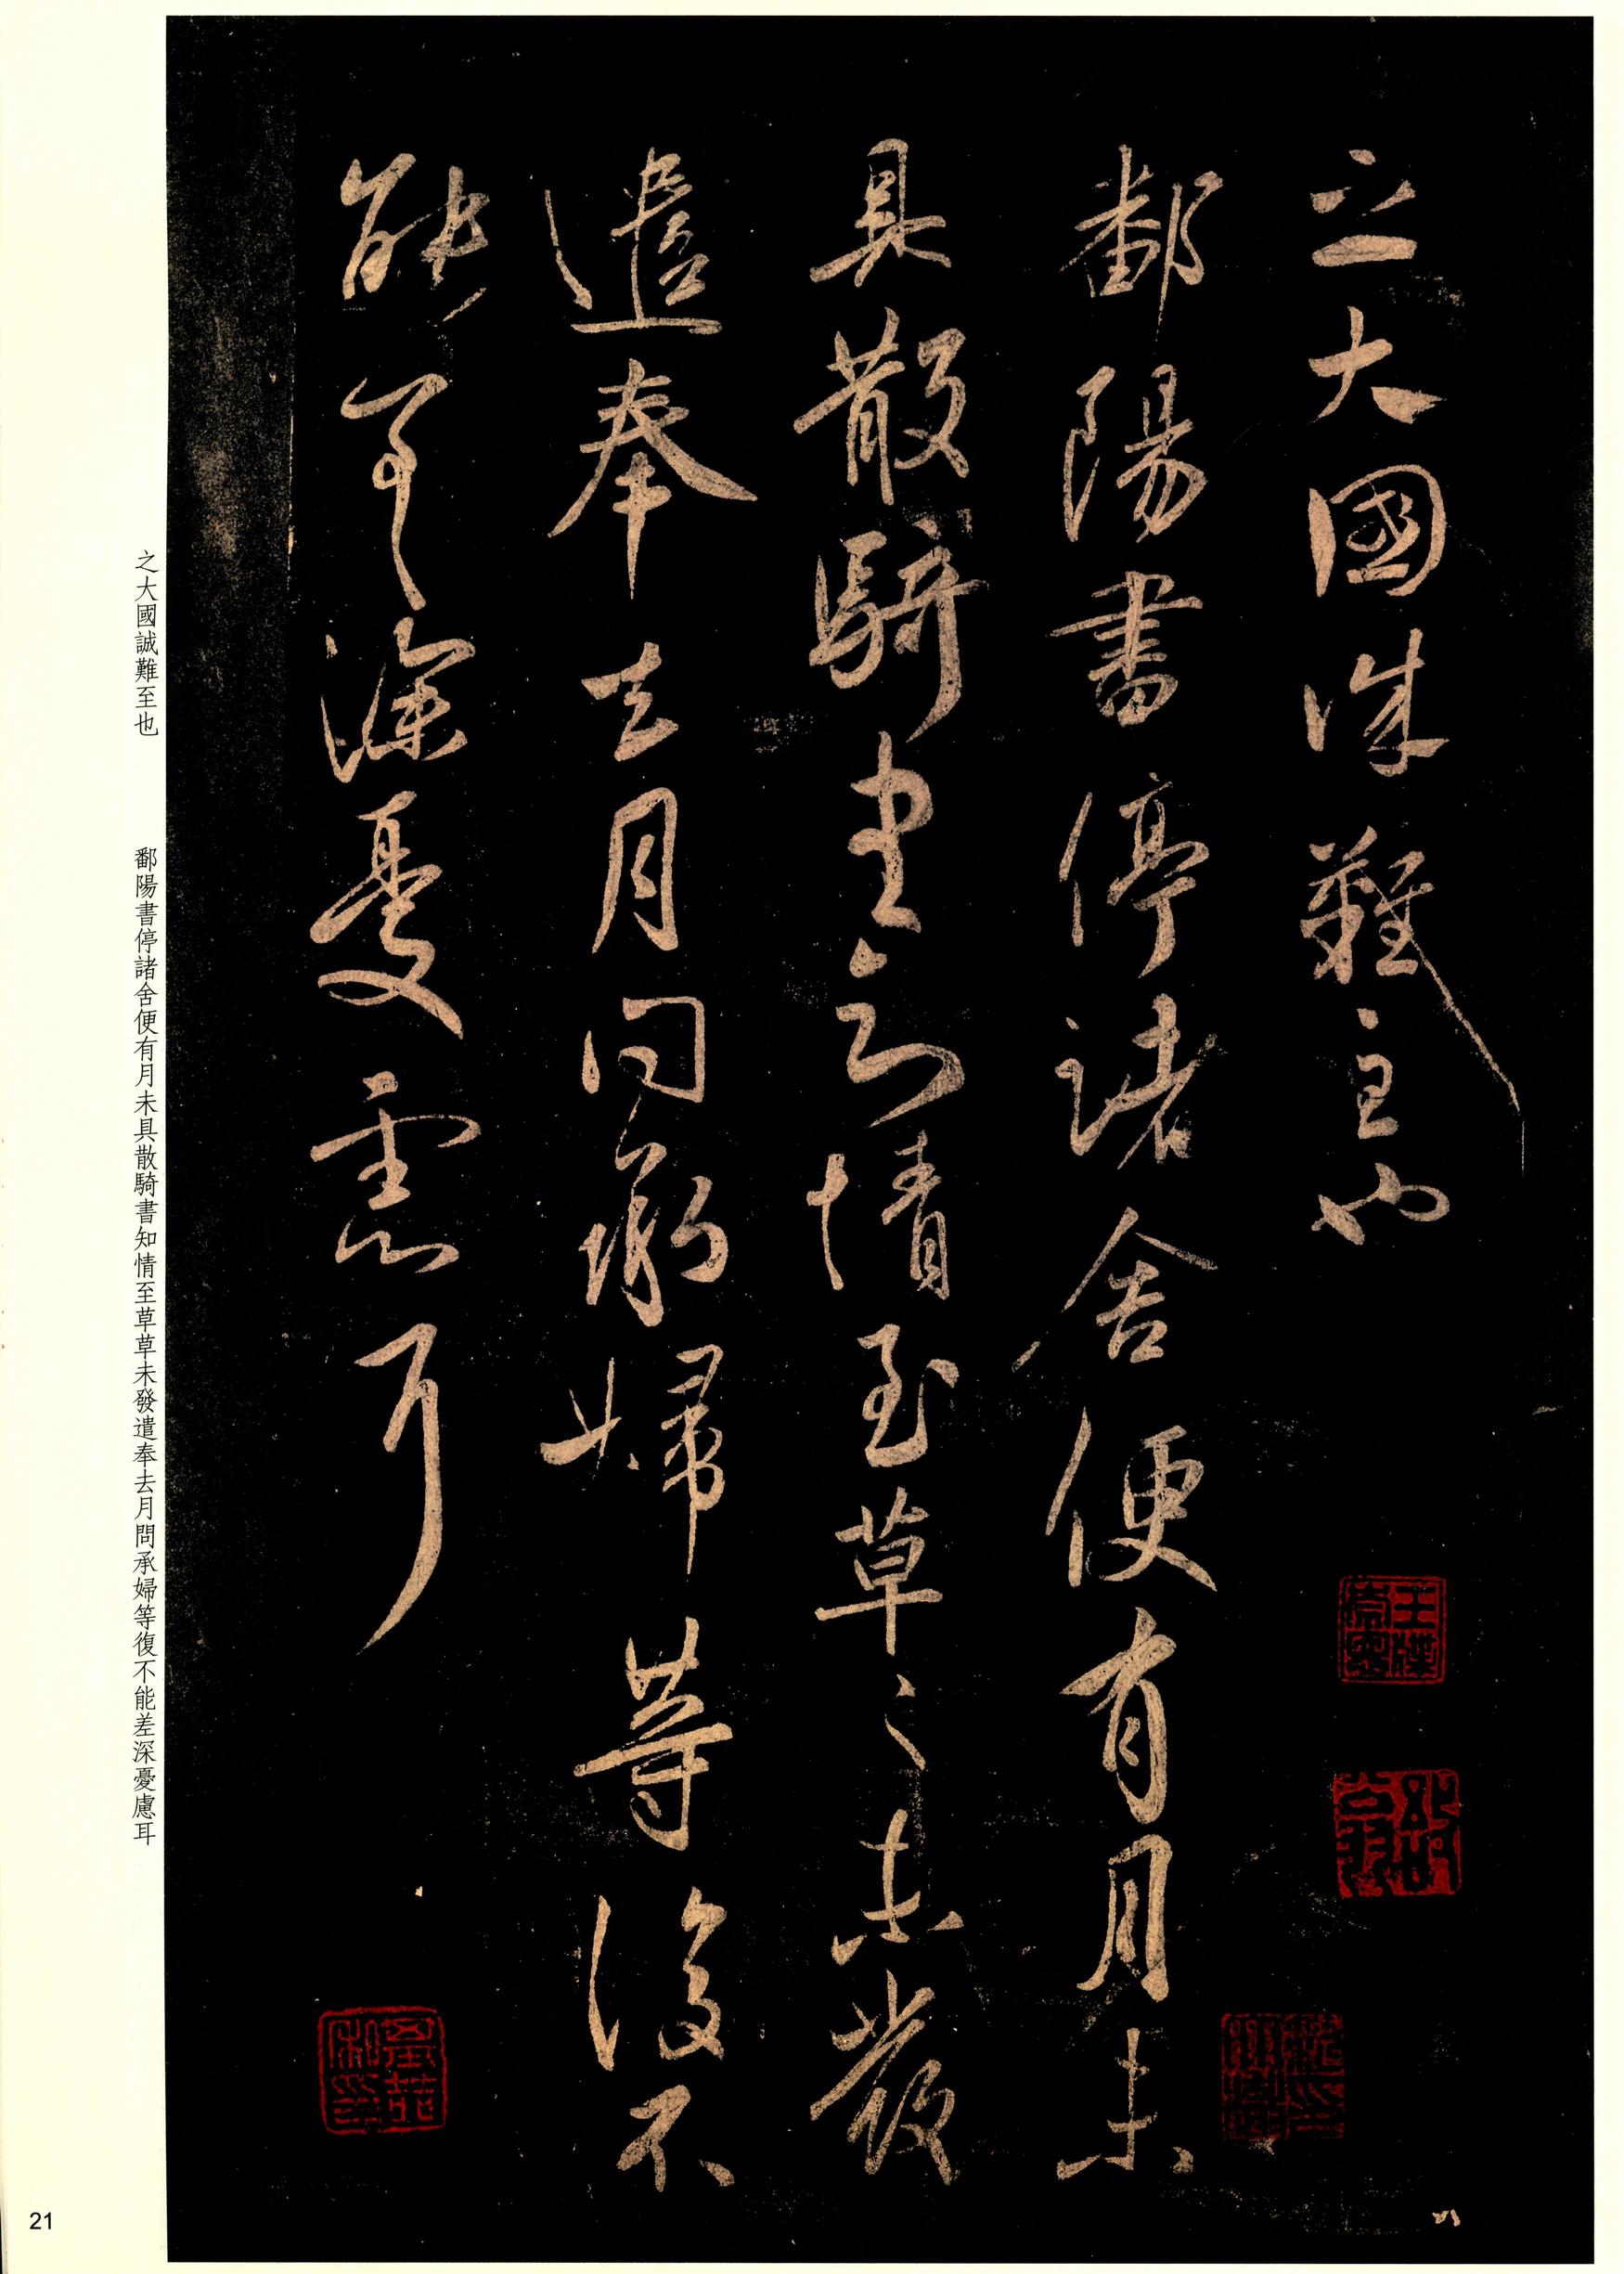 之大國誠難至也
鄱陽書停諸舍便有月未
具散騎書知情至草〻未發
遣奉去月問承婦等復不
能差深憂慮耳
之大國誠難至也　鄱陽書停諸舍便有月未具散騎書知情至草草未發遣奉去月問承婦等復不能差深憂慮耳
21